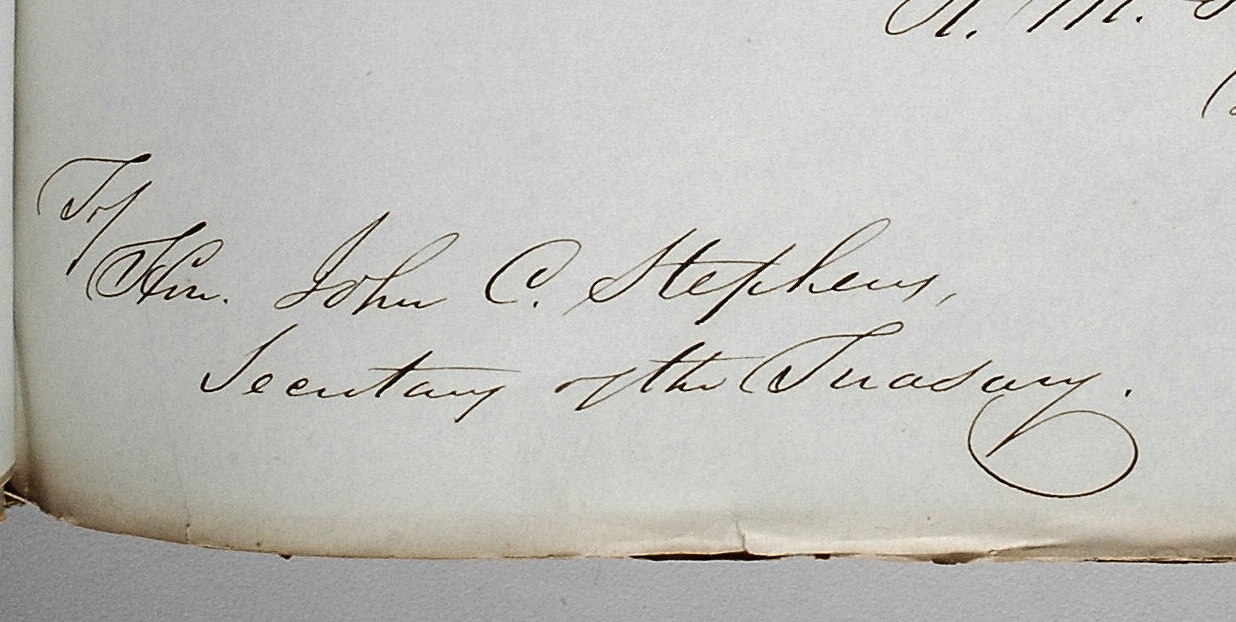 H. M.
To/
Hon. John C. Stephens,
Secretary of the Treasury.